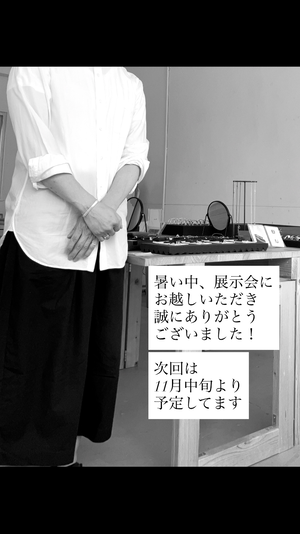 暑い中、展示会に
お越しいただき
誠にありがとう
ございました！
次回は
11月中旬より
予定してます